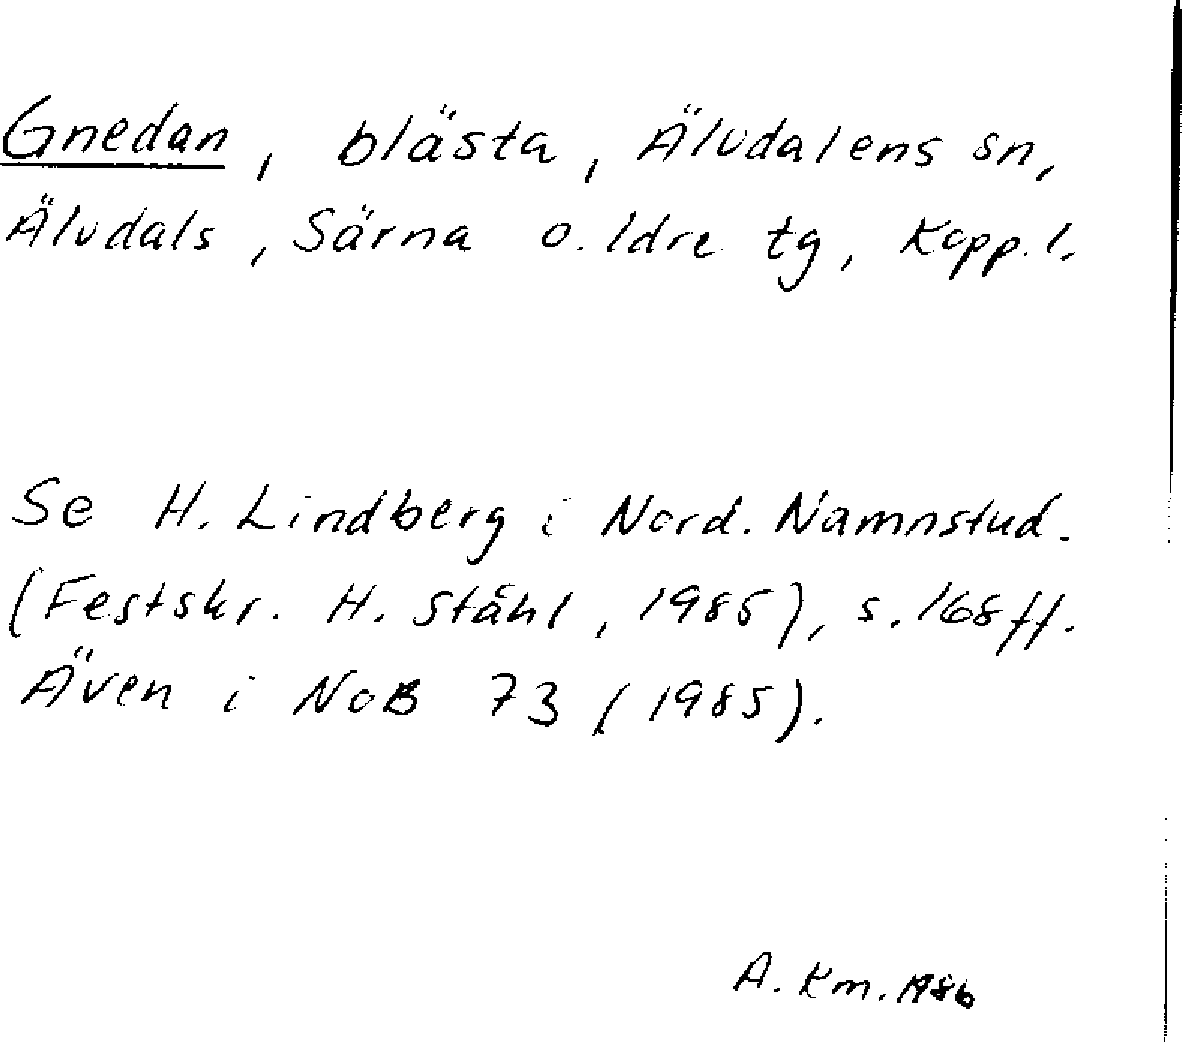 Gnedan, blästa, Älvdalens sn,
Älvdals, Särna o. Idre tg, Kopp. l.
Se H. Lindberg i Nord. Namnstud.
(Festskr. H. Ståhl, 1985), s. 168 ff.
Även i NoB 73 (1985).
A. Km. 1986